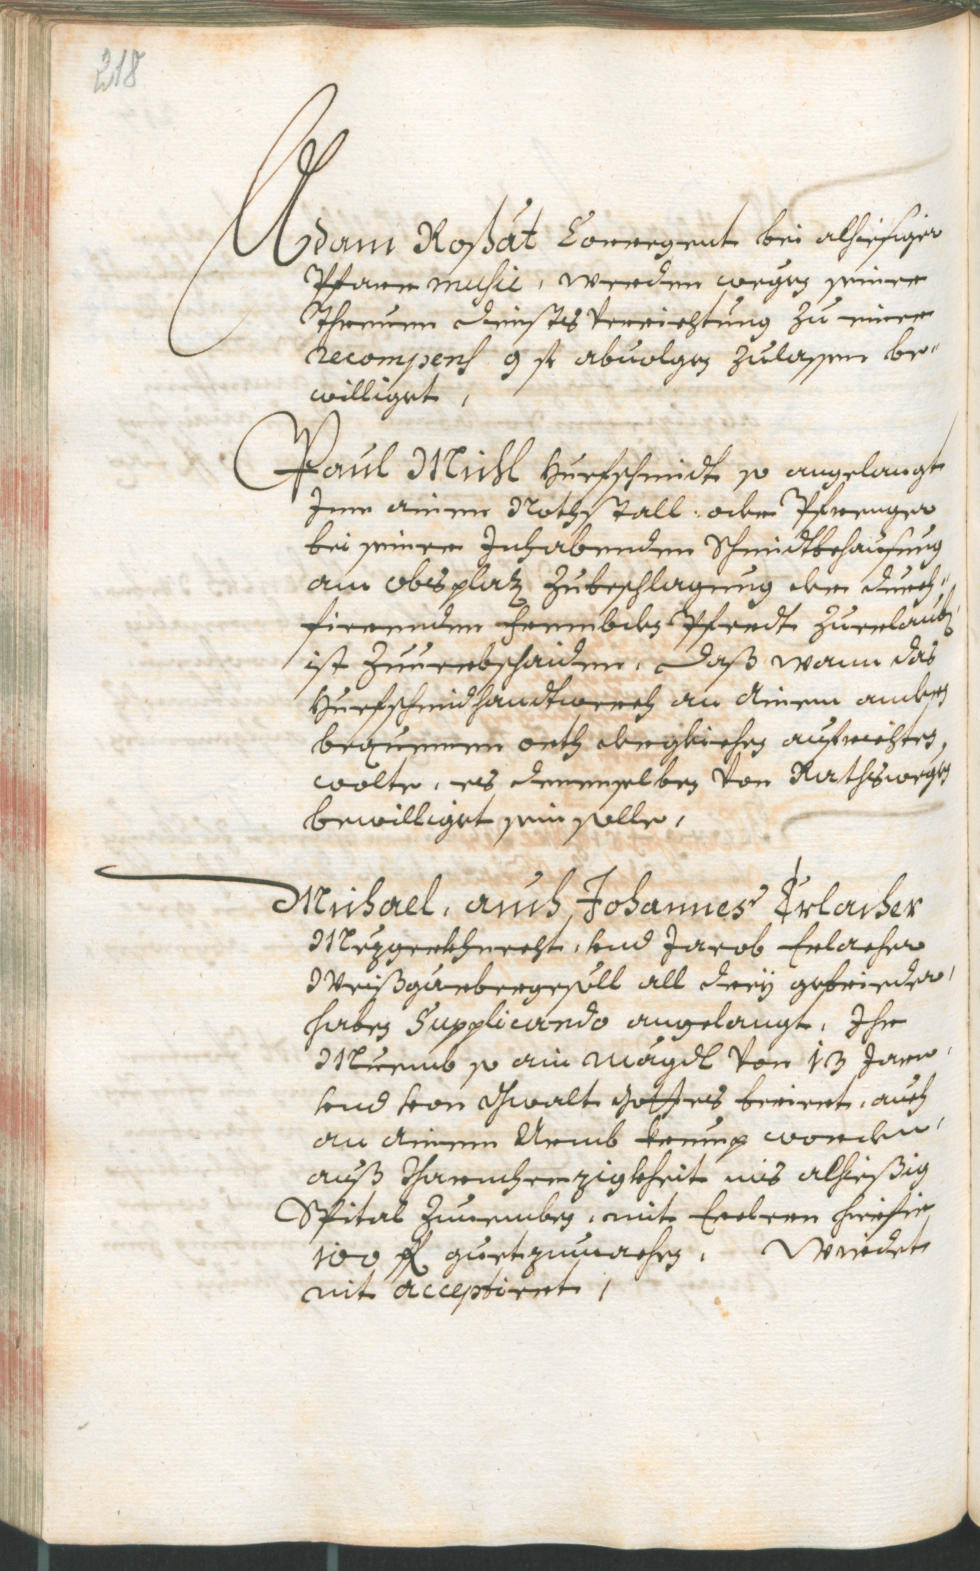 218
Adam Roßat Corregent bei alhiesiger
Pfarr music, werden wegen seiner
Threuen dienst Verrichtung zu einer
recompens 9 fl abuolgen zulassen be¬
williget,
Paul Michl Huefschmidt so angelangt
Ime ainen Nothstall oder Pfrenger
bei seiner Inhabenden Schmidtbehausung
am Obsplatz zubeschlagung der durch¬
fierenden frembden Pferdt zuerlauben
ist Zuuerbschaiden, daß wann das
Huefschmidhandtwerch an ainem andern
bequemen orth dergleichen aufrichten
wolte, es demselben Von Rathswegen
bewilliget sein solle,
Michael, auch Johannes Erlacher
Mezgerkhnecht, vnd Jacob Erlacher
Weißgärbergesöll all dreÿ gebrieder,
haben Supplicando angelangt, Ihr
Muemb so ain mägdl Von 13 Jarn,
vnd von Gwalt Gottes beriert, auch
an ainem Armb krump worden,
auß Parmherzigkheit ins alhießig
Spital zunemben, mit Erlern hiefir
100 fl guetzumachen, Wirdet
nit acceptiert,